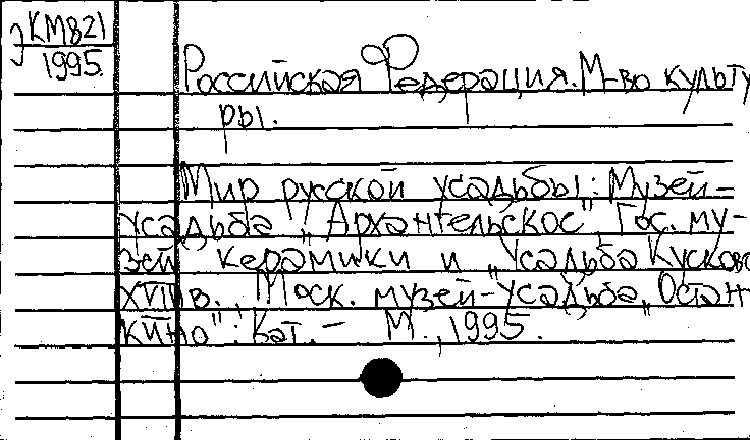 Э КМ821
1995.
Российская Федерация. М-во культу
ры.
Мир русской усадьбы: Музей-
усадьба "Архангельское", Гос. му-
зей керамики и "Усадьба Кусково
XVIII в., Моск. музей-усадьба "Остан
кино": Кат. – М., 1995.